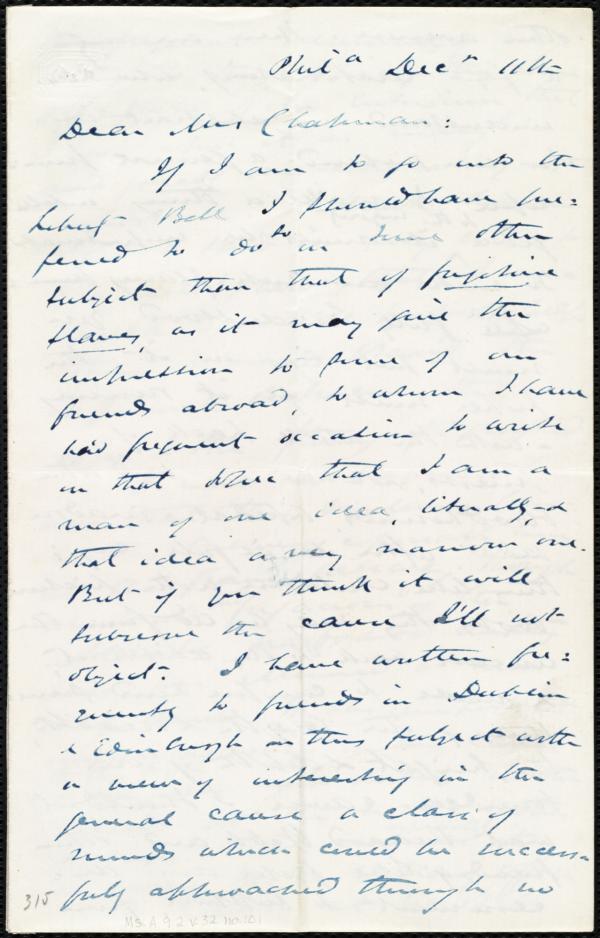 Phil.a Dec.r 11th
Dear Mrs Chapman:
If I am to go into the
Liberty Bell I should have pre=
ferred to do so in some other
subject than that of fugitive
slaves, as it may give the
impression to some of our
friends abroad, to whom I have
had frequent occasion to write
on that subject that I am a
man of one idea, literally, &
that idea a very narrow one.
But if you think it will
subserve the cause I'll not
object. I have written fre=
quently to friends in Dublin
& Edinburgh on this subject with
a view of interesting in the
general cause a class of
minds which could be success=
fully approached through no
315
MS. A. 9.2 v. 32 no. 101